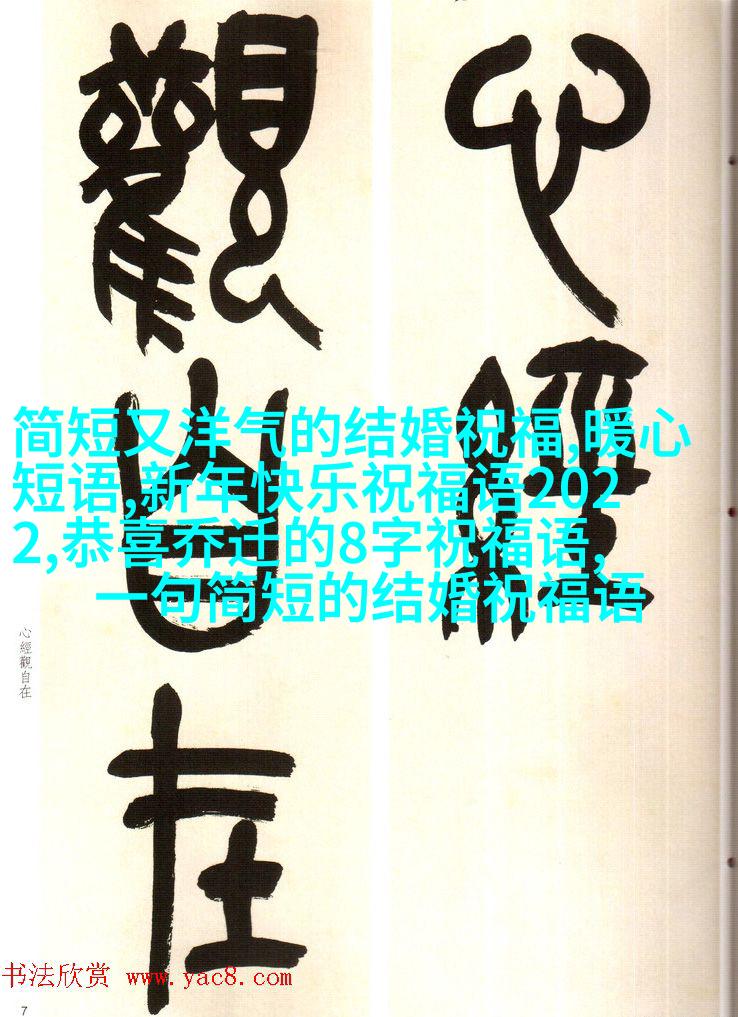 心經
觀自在
簡短又洋气的结婚祝福,暖心
短语,新年快乐祝福语202
2,恭喜乔迁的8字祝福语,
一句简短的结婚祝福语
心經觀自在
书法欣赏 www.yac8.com
7